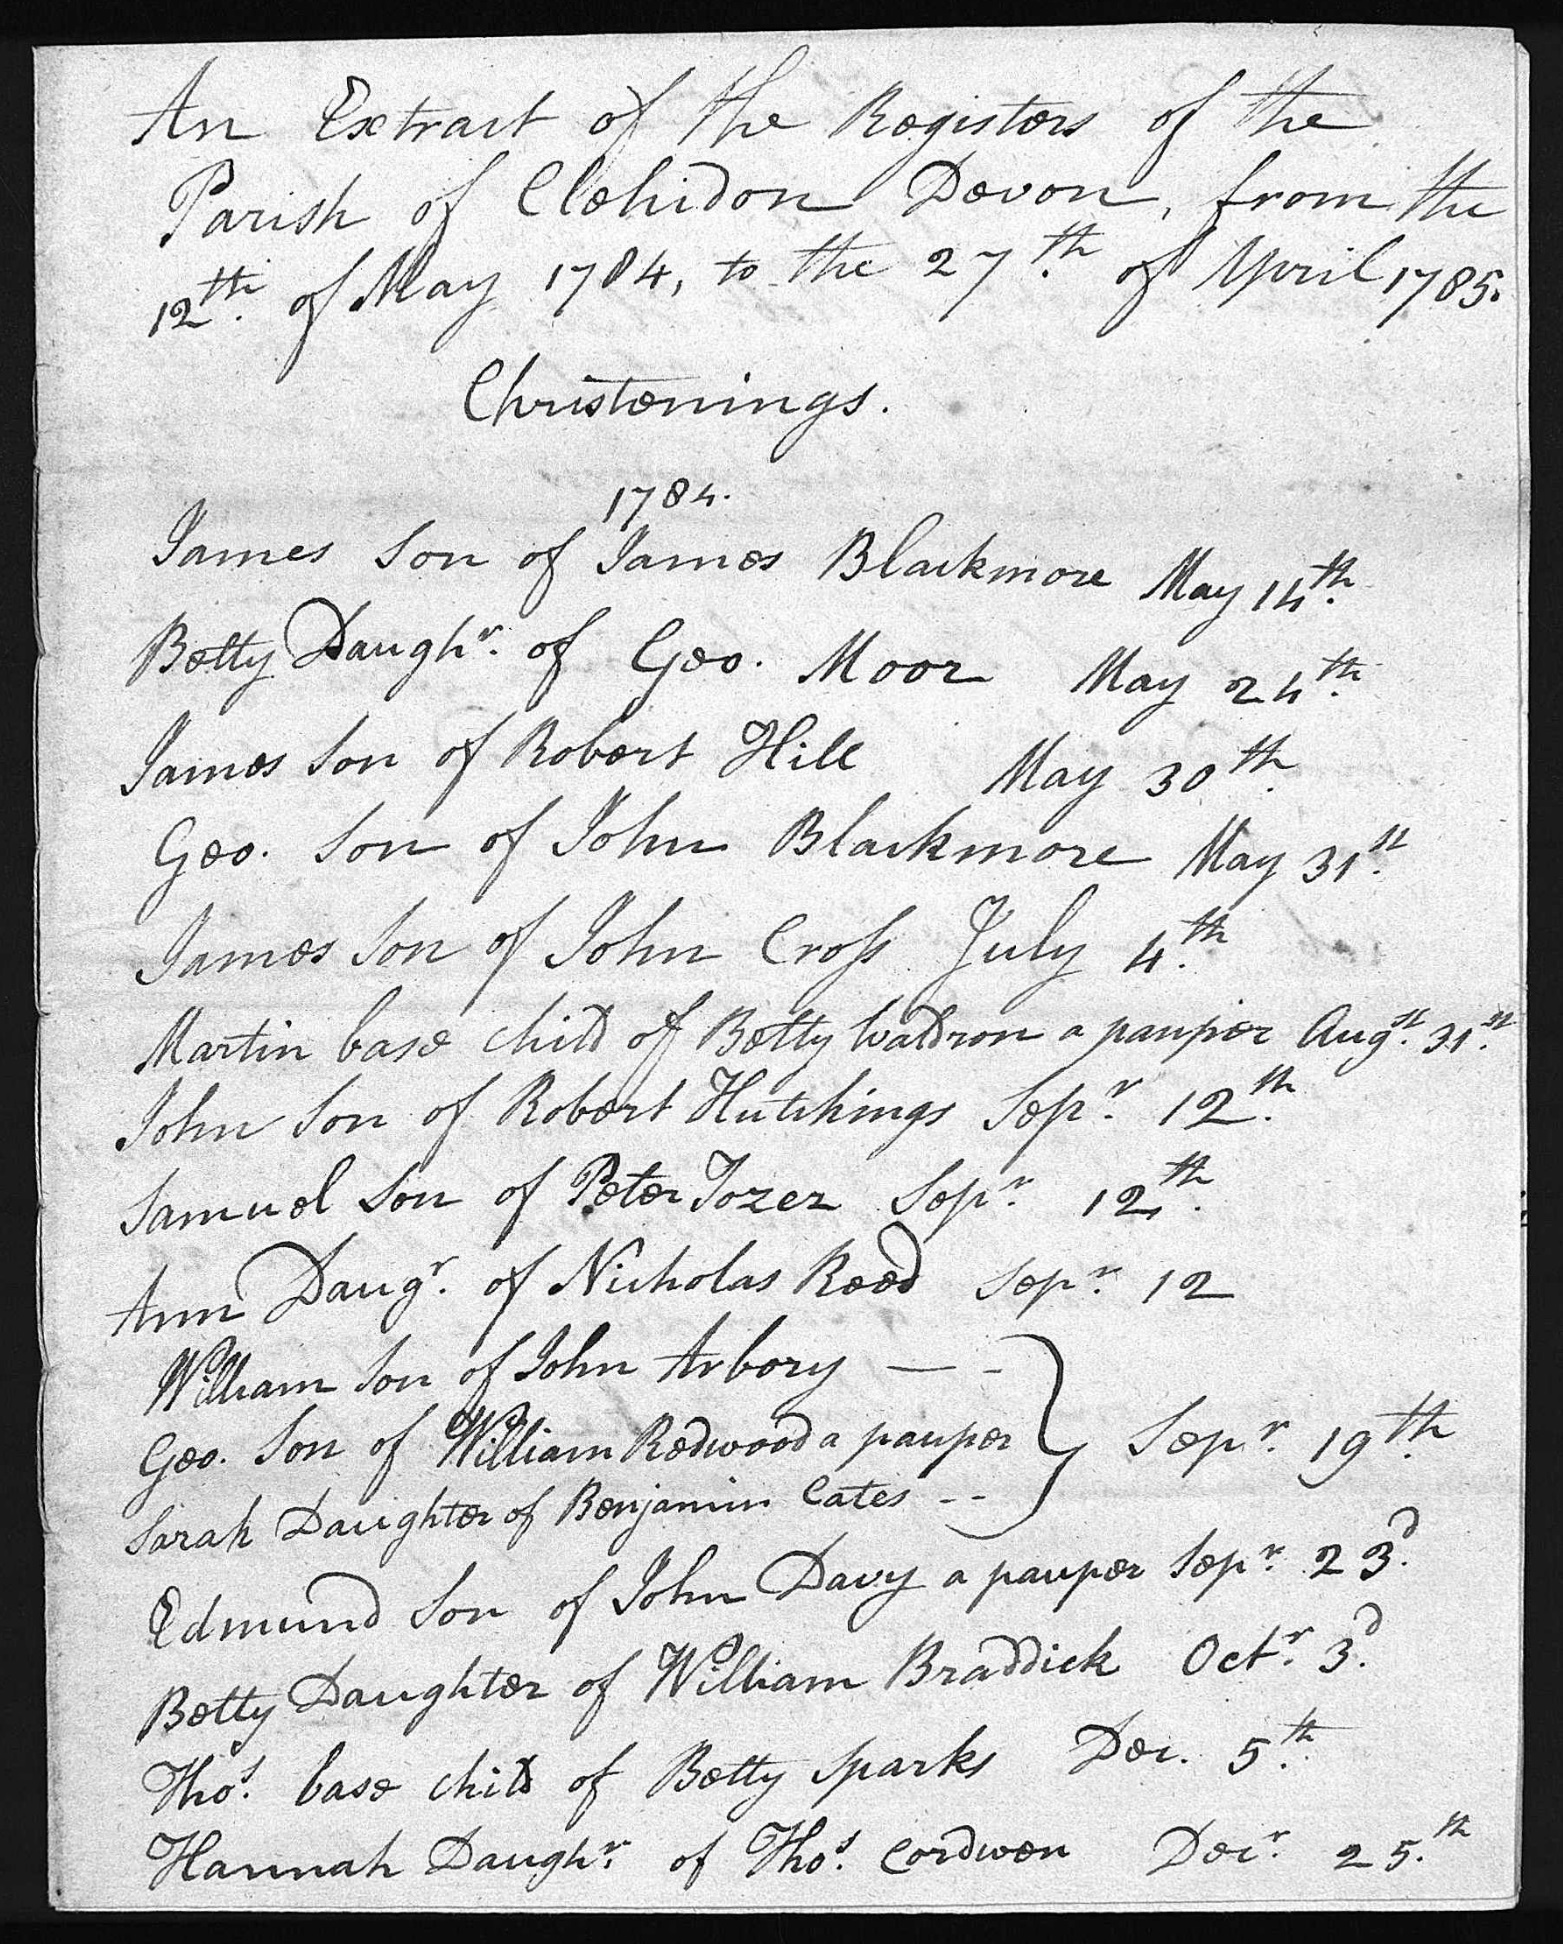 An Extract of the Registers of the
Parish of Clehidon Devon, from the
12th. of May 1784, to the 27th. of April 1785.
Christenings.
1784.
James Son of James Blackmore May 14th.
Betty Daughr. of Geo. Moor May 24th.
James Son of Robert Hill May 30th.
Geo. Son of John Blackmore May 31st.
James Son of John Cross July 4th.
Martin base child of Betty Waldron a pauper Augst. 31st.
John Son of Robert Hutchings Sepr. 12th.
Samuel Son of Peter Tozer Sepr. 12th.
Ann Daugr. of Nicholas Reed Sepr. 12
William Son of John Arbery — -
Geo. Son of William Redwood a pauper } Sepr. 19th.
Sarah Daughter of Benjamin Cates - -
Edmund Son of John Davy a pauper Sepr. 23d.
Betty Daughter of William Braddick Octr. 3d.
Thos. base child of Betty Sparks Dec. 5th.
Hannah Daughr. of Thos. Cordwen Decr. 25.th